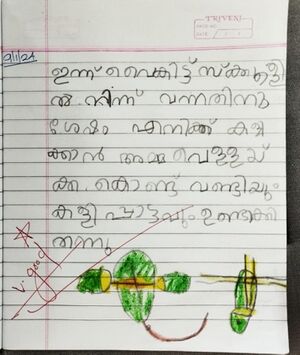 TRIVENI
DATE
9/1/24
ഇന്ന് വൈകിട്ട് സ്ക്കൂളി
ൽ നിന്ന് വന്നതിനു
ശേഷം എനിക്ക് കളി
ക്കാൻ അമ്മ വെള്ളയ്
ക്ക കൊണ്ട് വണ്ടിയും
കളിപ്പാട്ടവും ഉണ്ടാക്കി
തന്നു
V. good